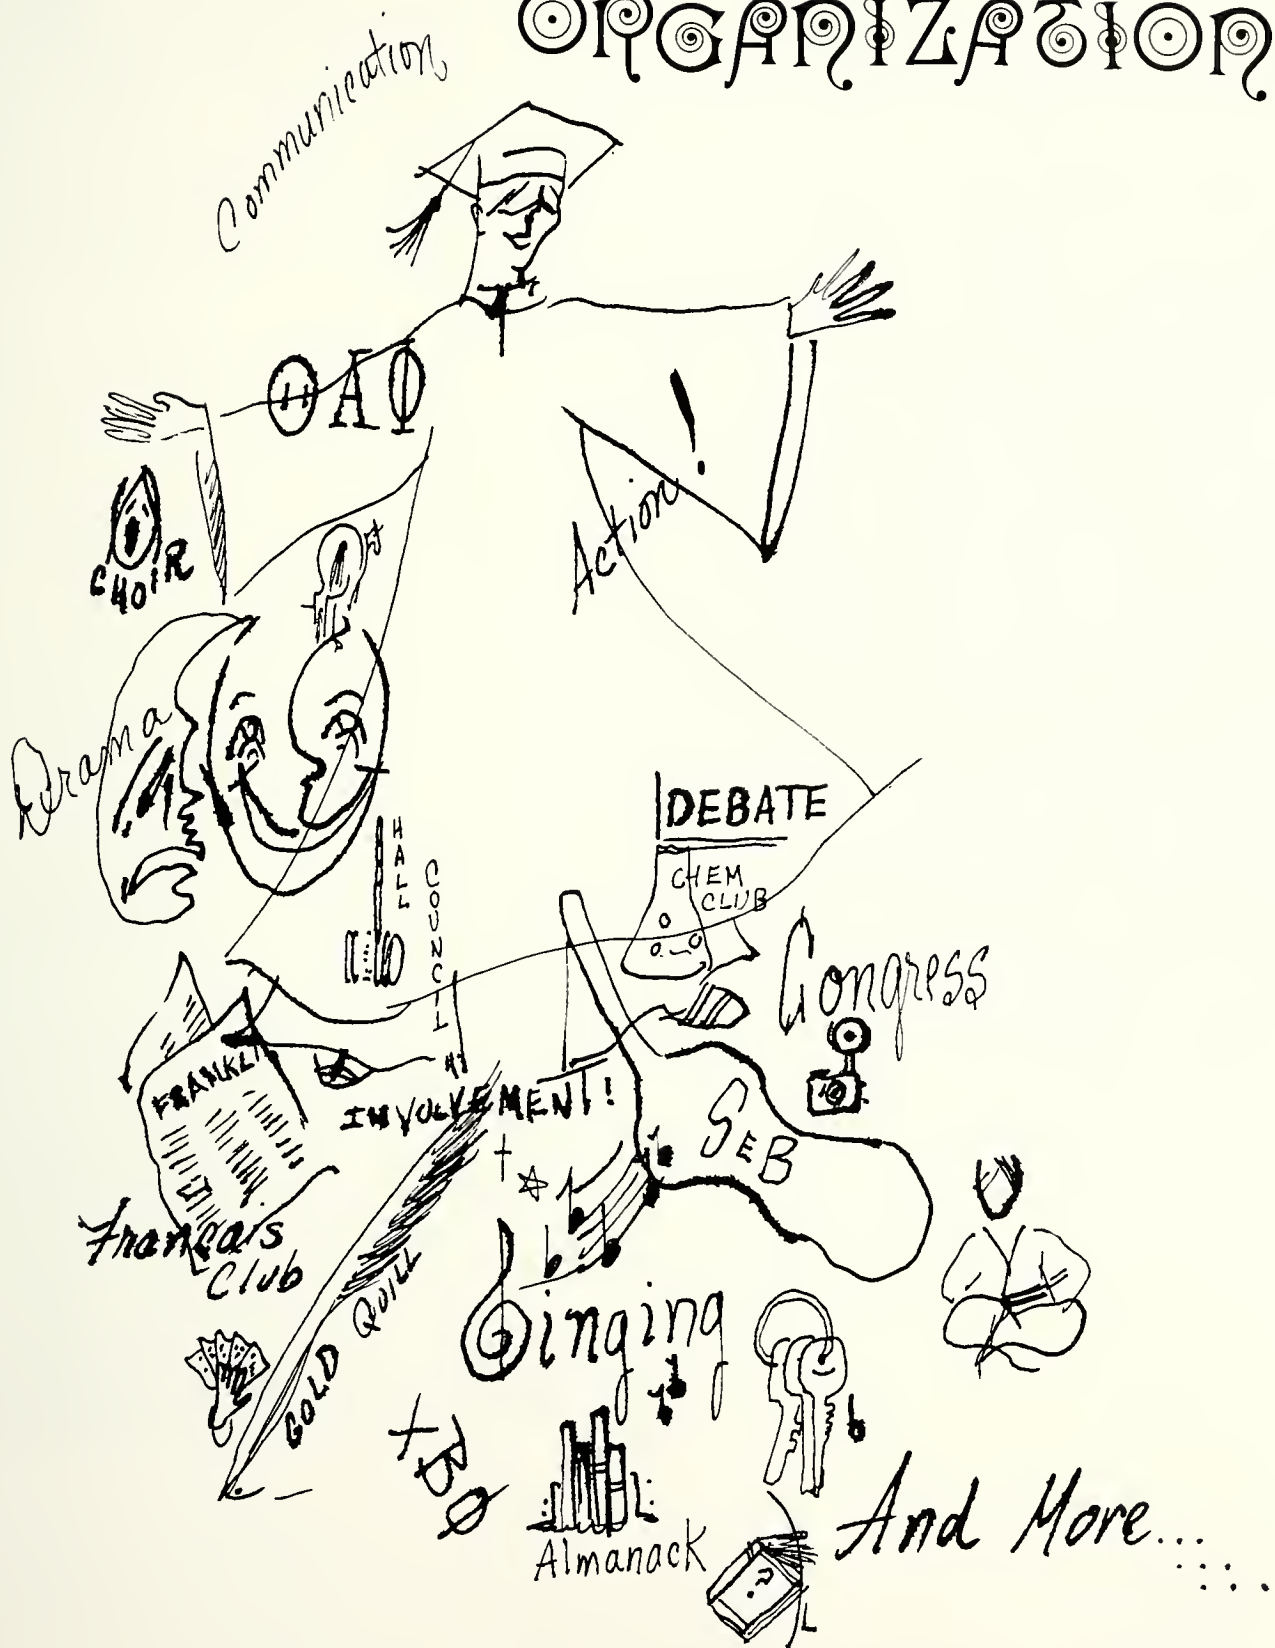 ORGANIZATION
Communication
ΘΑΦ
!
Action
CHOIR
Drama
DEBATE
HALL
COUNCIL
CHEM
CLUB
Congress
FRANKLI
INVOLVEMENT!
SEB
Français
Club
GOLD QUILL
Singing
XBØ
Almanack
?
And More...